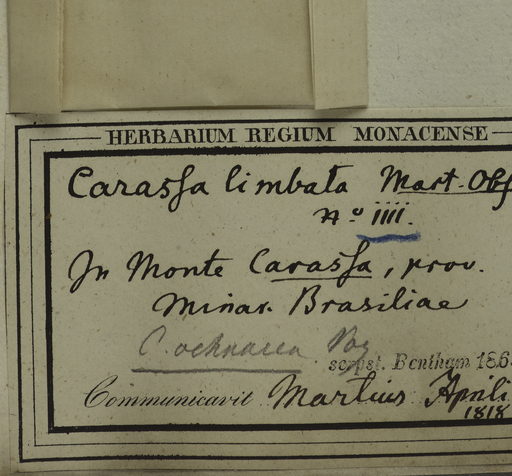 HERBARIUM REGIUM MONACENSE
Carassa limbata Mart. Obs
No 1111.
In Monte Carassa, prov.
Minar. Brasiliae
C. ochnacea
scripst. Bentham 186
Communicavit Martius Aprili
1818